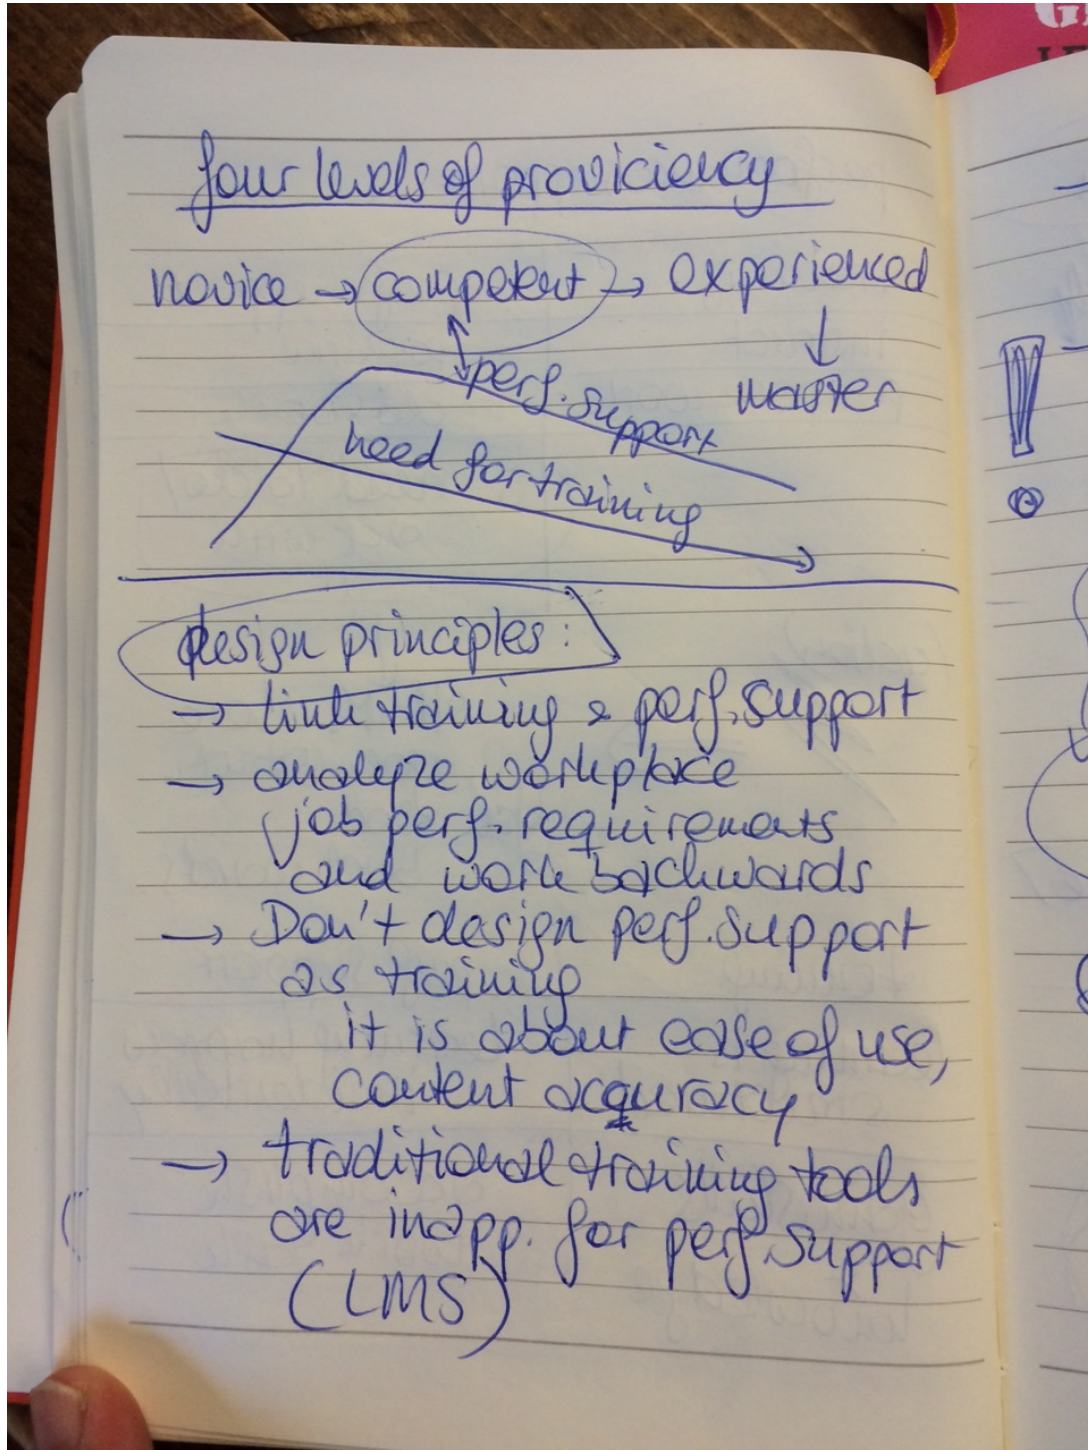 four levels of proviciency
novice → competent → experienced
master
perf. support
need for training
design principles:
→ link training & perf. support
→ analyze workplace
job perf. requirements
and work backwards
→ Don't design perf. support
as training
it is about ease of use,
content acquracy
→ traditional training tools
are inapp. for perf. support
(LMS)
!